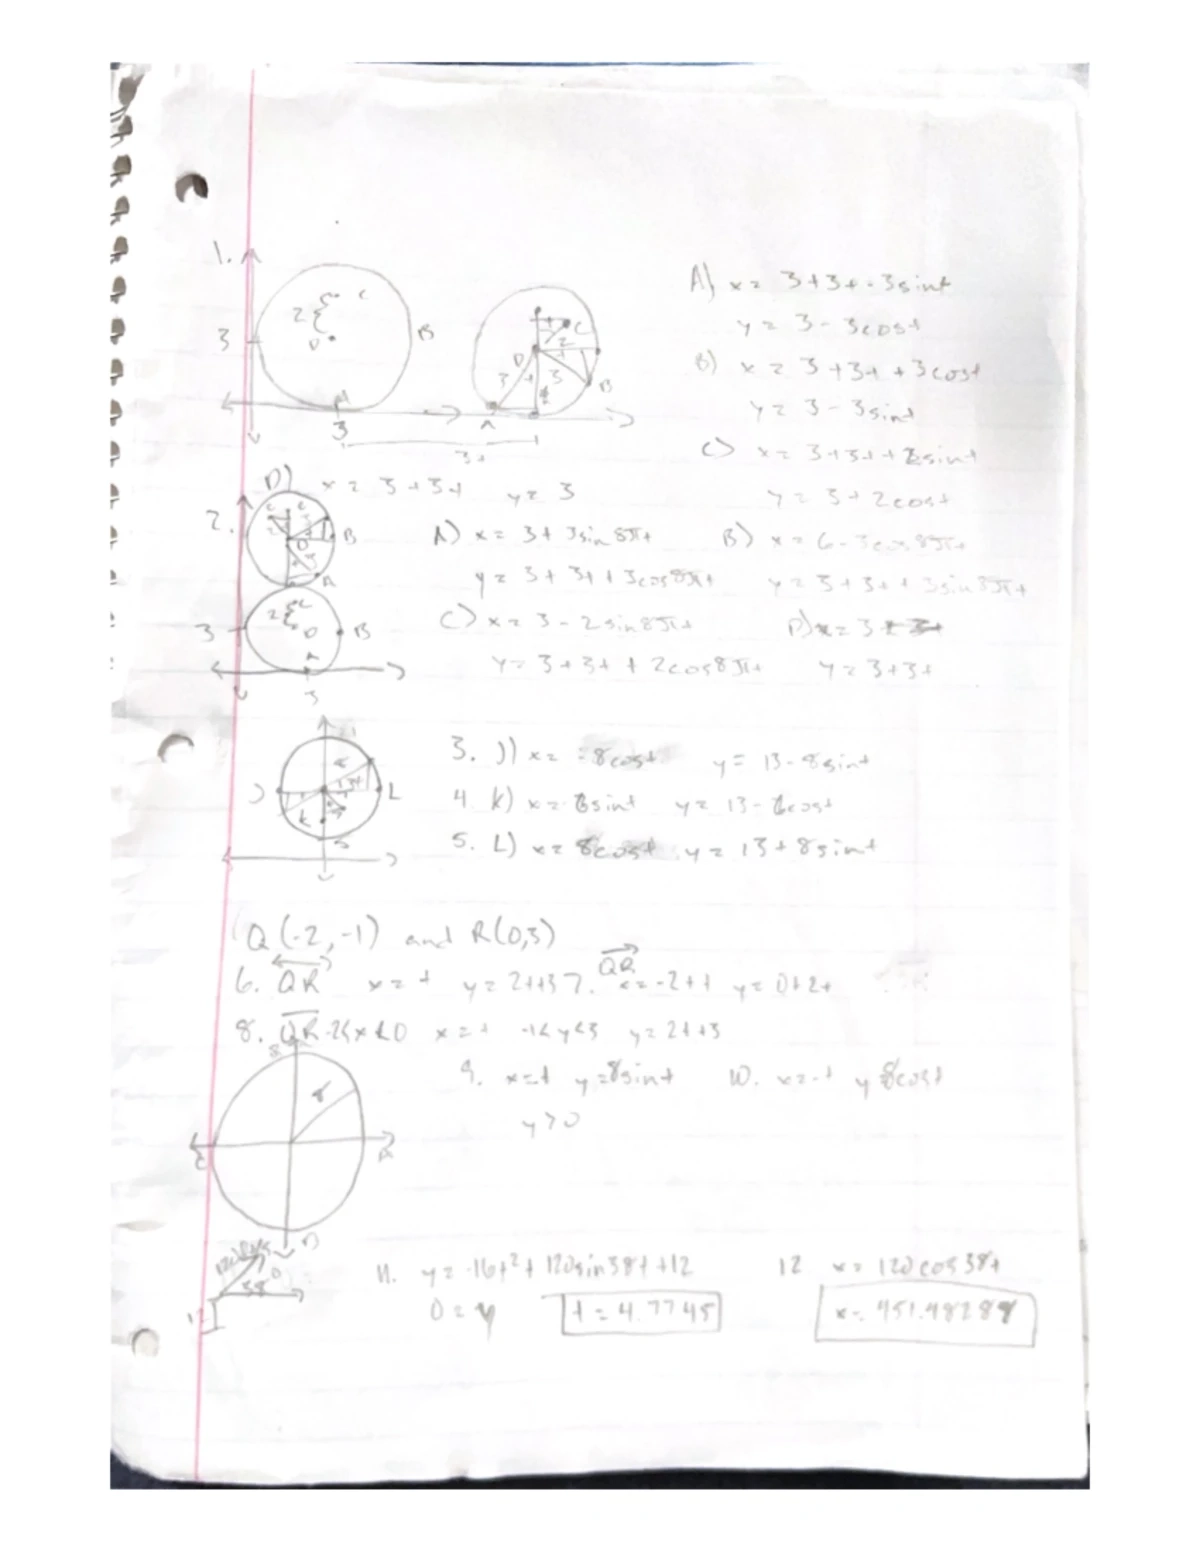 1.
3
2
C
D
B
A
3
3t
A) x = 3+3t-3sint
y = 3-3cost
B) x = 3+3t+3cost
y = 3-3sint
C) x = 3+3t+2sint
y = 3+2cost
D) x = 3+3t y = 3
2.
A) x = 3+3sin8πt B) x = 6-3cos8πt
y = 3+3t+3cos8πt y = 3+3t+3sin8πt
C) x = 3-2sin8πt D) x = 3
y = 3+3t+2cos8πt y = 3+3t
3. J) x = -8cost y = 13-8sint
4. K) x = sint y = 13-cost
5. L) x = 8cost y = 13+8sint
Q(-2,-1) and R(0,3)
6. QR x = t y = 2t+3 7. QR x = -2+t y = 0+2t
8. QR -2<x<0 x = t -1<y<3 y = 2t+3
9. x=t y=8sint 10. x=-t y 8cost
y>0
8
38°
12
11. y = -16t²+120sin38t+12 12 x = 120cos38t
0 = y t = 4.7745 x = 451.48289